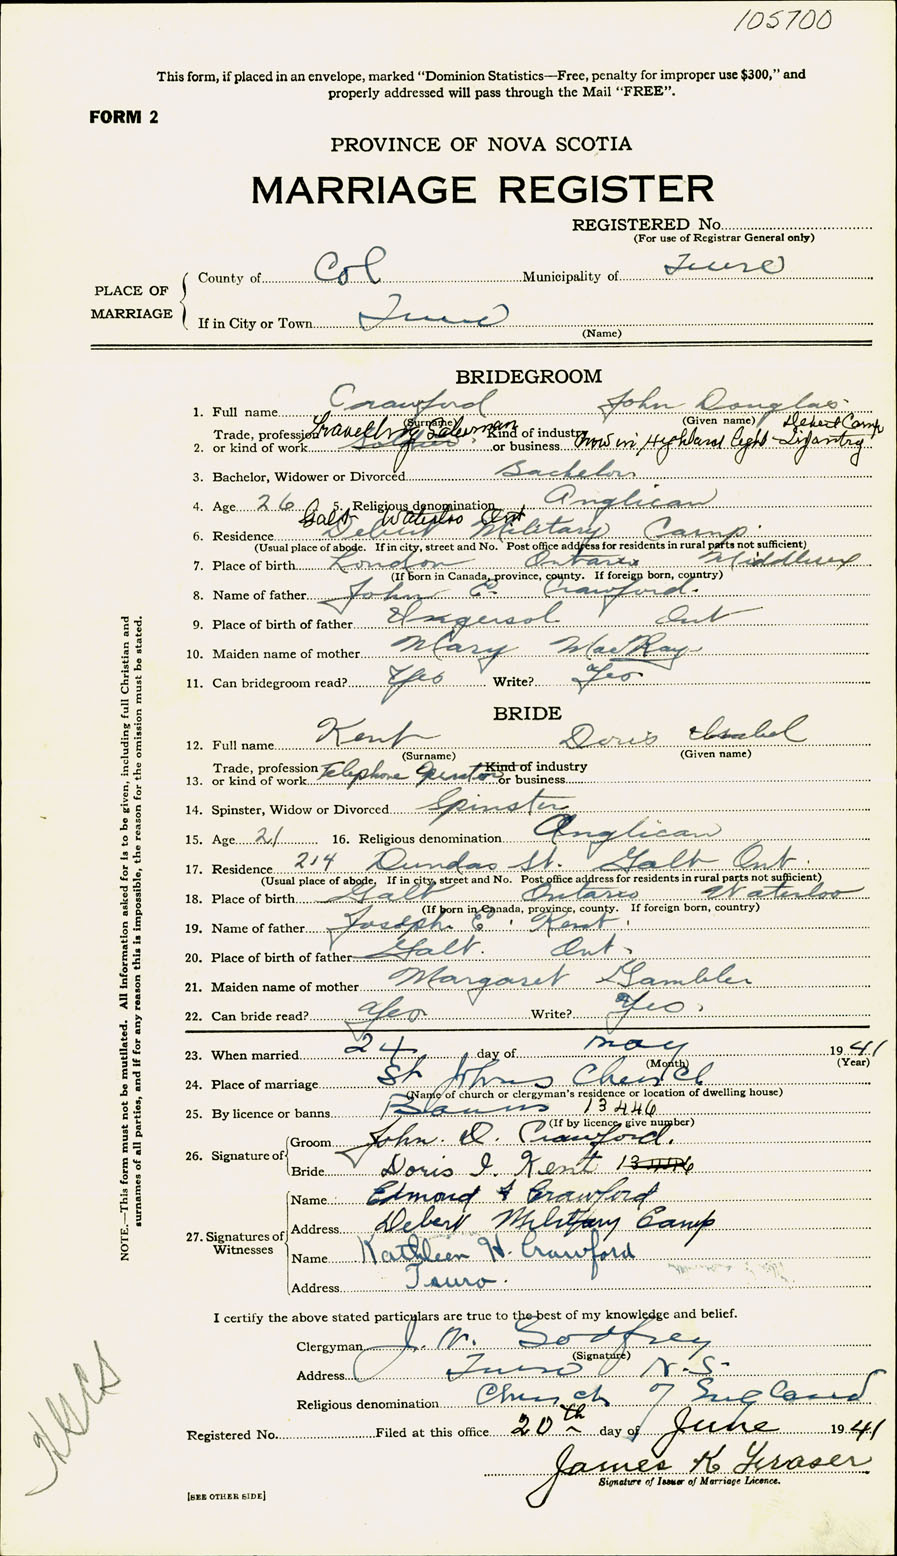 105700
This form, if placed in an envelope, marked "Dominion Statistics—Free, penalty for improper use $300," and
properly addressed will pass through the Mail "FREE".
FORM 2
PROVINCE OF NOVA SCOTIA
MARRIAGE REGISTER
REGISTERED No.
(For use of Registrar General only)
PLACE OF MARRIAGE
County of Col Municipality of Truro
If in City or Town Truro
(Name)
BRIDEGROOM
1. Full name Crawford John Douglas
(Surname) (Given name)
Debert Camp
Trade, profession Travelling Salesman Kind of industry
2. or kind of work Soldier or business now in Highland Light Infantry
3. Bachelor, Widower or Divorced Bachelor
4. Age 26 5. Religious denomination Anglican
Galt Waterloo Ont
6. Residence Debert Military Camp.
(Usual place of abode. If in city, street and No. Post office address for residents in rural parts not sufficient)
7. Place of birth London Ontario Middlesex
(If born in Canada, province, county. If foreign born, country)
8. Name of father John E. Crawford.
9. Place of birth of father Ingersol Ont
10. Maiden name of mother Mary MacKay
11. Can bridegroom read? Yes Write? Yes
BRIDE
12. Full name Kent Doris Isabel
(Surname) (Given name)
Trade, profession Telephone Operator Kind of industry
13. or kind of work or business
14. Spinster, Widow or Divorced Spinster
15. Age 21 16. Religious denomination Anglican
17. Residence 214 Dundas St. Galt Ont.
(Usual place of abode, If in city, street and No. Post office address for residents in rural parts not sufficient)
18. Place of birth Galt Ontario Waterloo
(If born in Canada, province, county. If foreign born, country)
19. Name of father Joseph E. Kent.
20. Place of birth of father Galt. Ont.
21. Maiden name of mother Margaret Gambler
22. Can bride read? Yes Write? Yes.
23. When married 24 day of May 1941
(Month) (Year)
24. Place of marriage St Johns Church
(Name of church or clergyman's residence or location of dwelling house)
25. By licence or banns Banns 13446
(If by licence, give number)
26. Signature of
Groom John. D. Crawford.
Bride Doris I. Kent 13446
27. Signatures of Witnesses
Name Edmond F Crawford
Address Debert Military Camp
Name Kathleen H. Crawford
Address Truro.
I certify the above stated particulars are true to the best of my knowledge and belief.
Clergyman J. W. Godfrey
(Signature)
Address Truro N.S.
Religious denomination Church of England
Registered No. Filed at this office 20th day of June 1941
James K Fraser
Signature of Issuer of Marriage Licence.
[SEE OTHER SIDE]
NOTE.—This form must not be mutilated. All information asked for is to be given, including full Christian and
surnames of all parties, and if for any reason this is impossible, the reason for the omission must be stated.